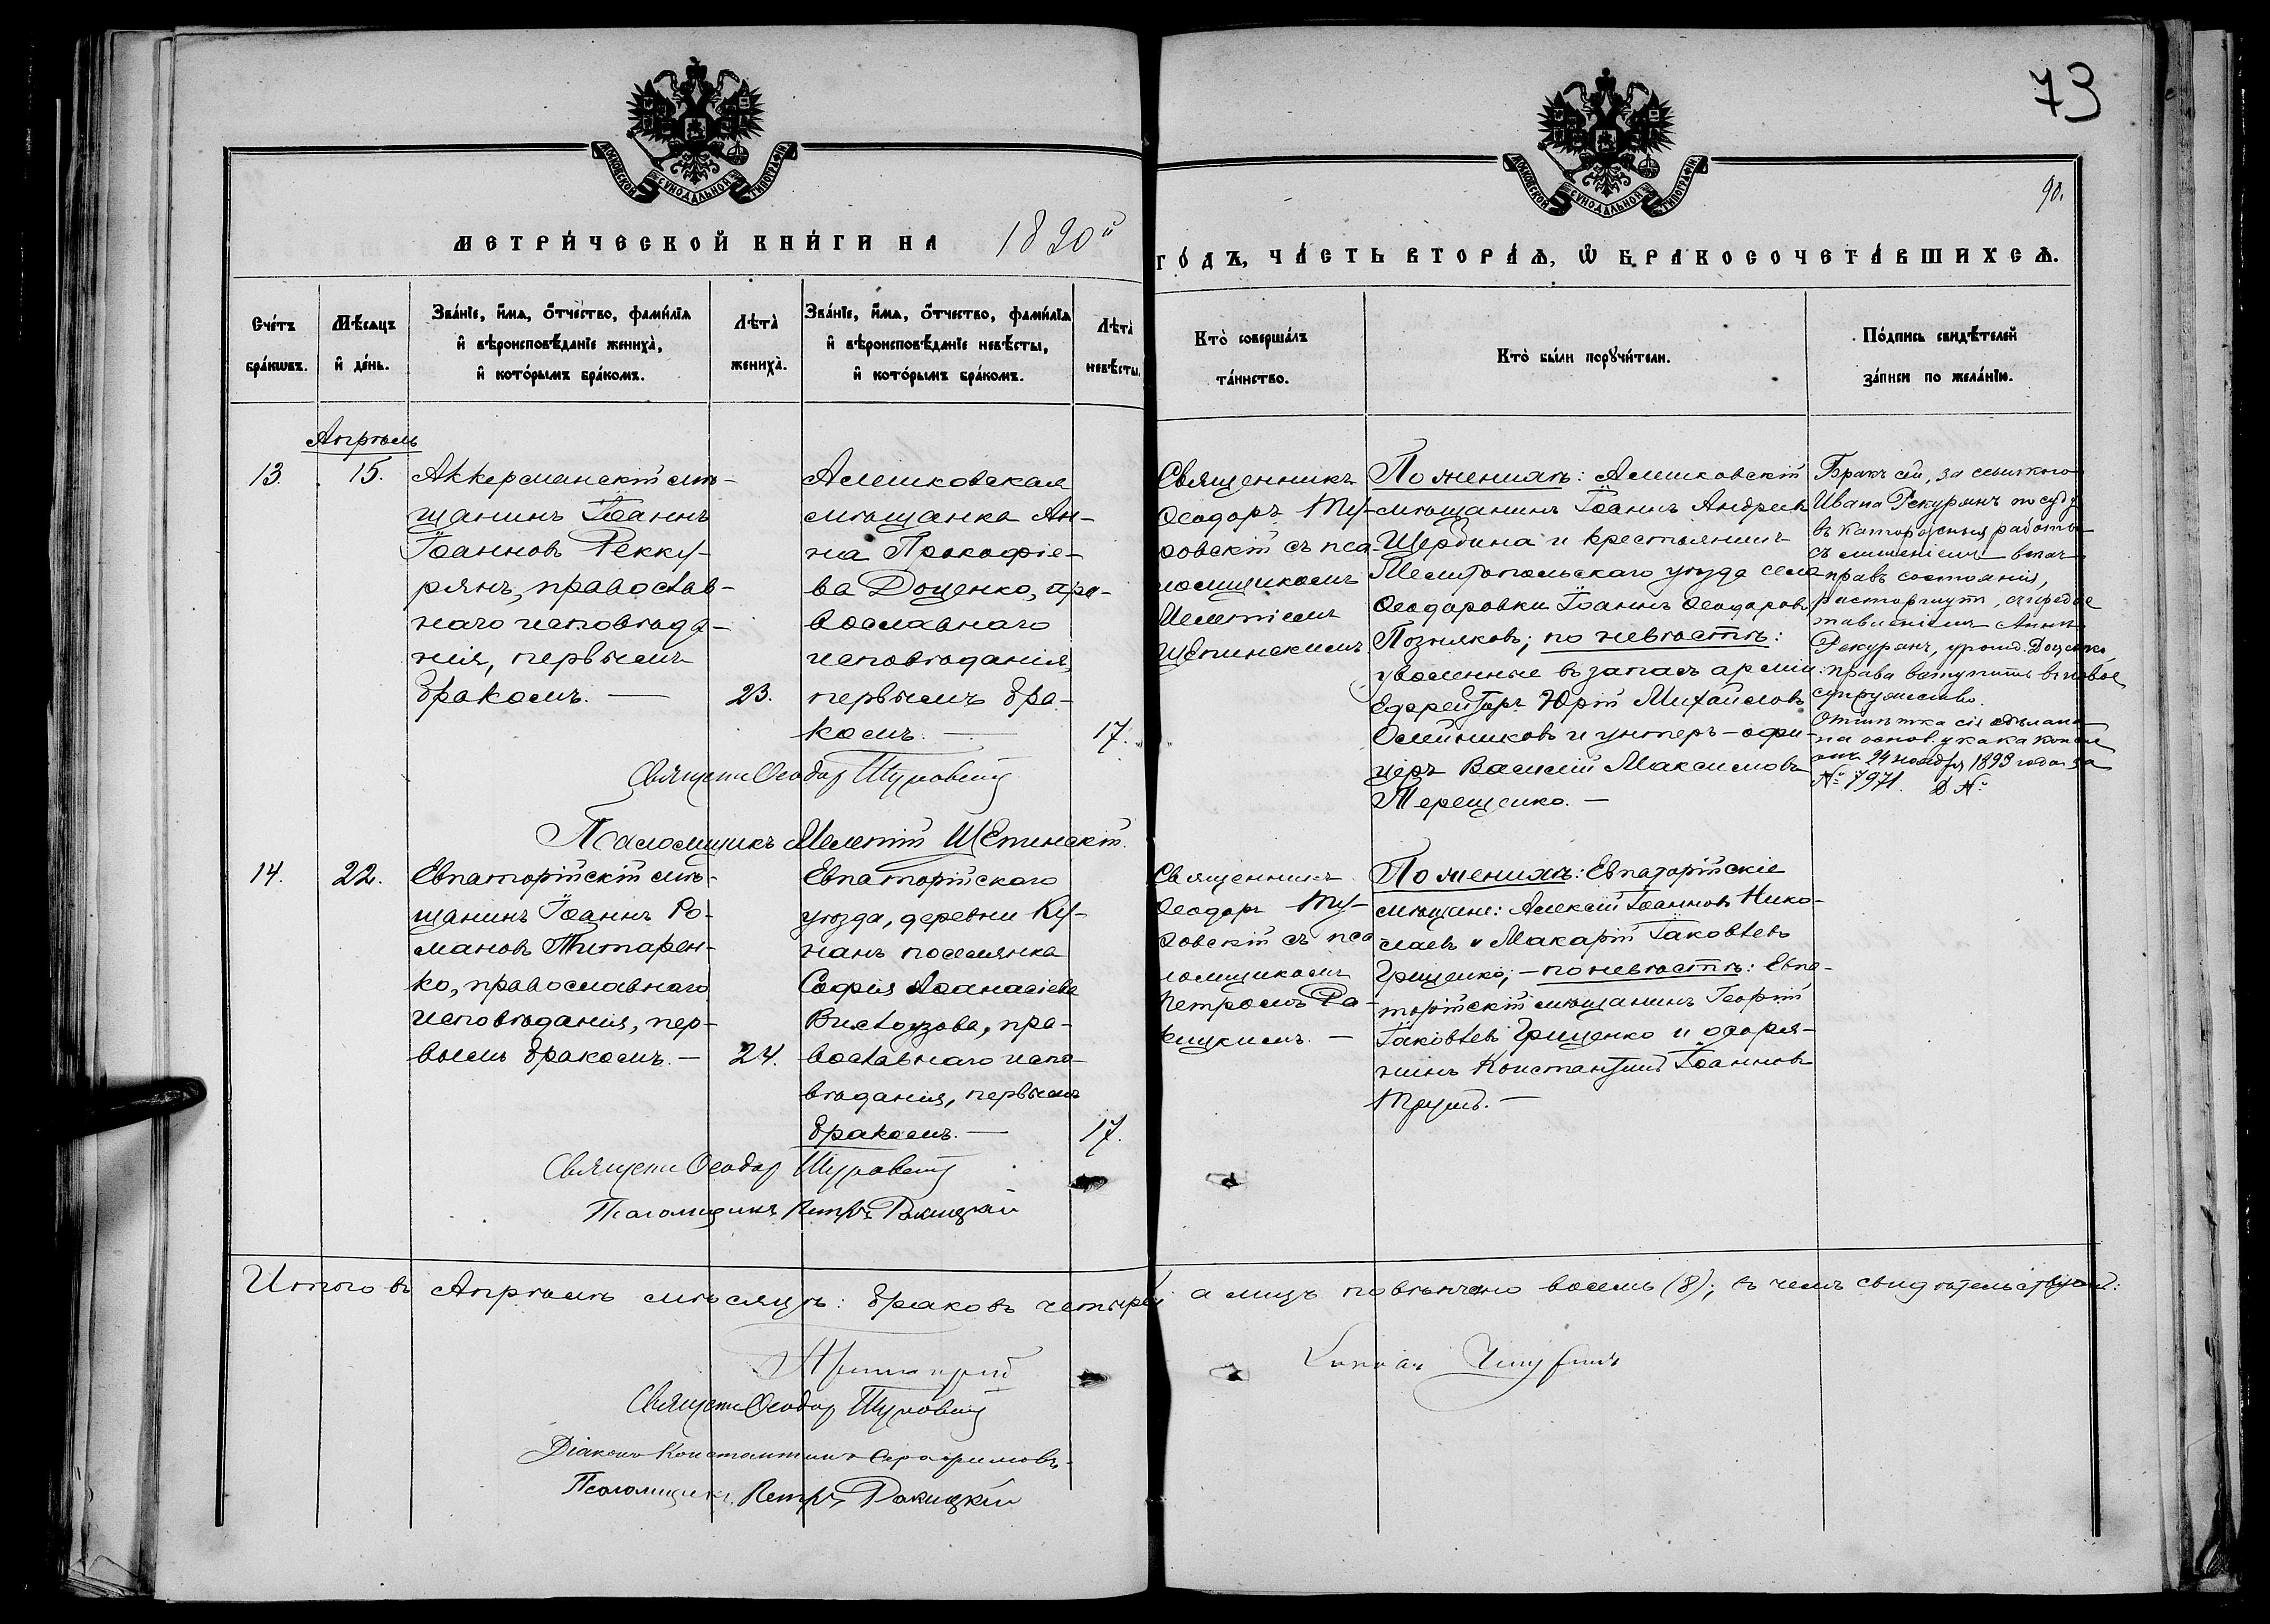 73
90.
МОСКОВСКОЙ СѴНОДАЛЬНОЙ ТИПОГРАФІИ
МОСКОВСКОЙ СѴНОДАЛЬНОЙ ТИПОГРАФІИ
МЕТРИ́ЧЕСКОЙ КНИ́ГИ НА 1890й
ГО́ДЪ, ЧА́СТЬ ВТОРА́Ѧ, Ѽ БРАКОСОЧЕТА́ВШИХСѦ.
Счétъ бра́кѡвъ.
Мѣ́сѧцъ и҆ де́нь.
Зва́нїе, и҆́мѧ, ѻ҆́тчество, фами́лїѧ
и҆ вѣроисповѣ́данїе женихà,
и҆ кото́рымъ бра́комъ.
Лѣтà женихà.
Зва́нїе, и҆́мѧ, ѻ҆́тчество, фами́лїѧ
и҆ вѣроисповѣ́данїе невѣ́сты,
и҆ кото́рымъ бра́комъ.
Лѣтà невѣ́сты.
Ктò соверша́лъ
та́инство.
Ктò бы́ли порꙋчи́тели.
По́дпись свидѣ́телей
за́писи по жела́нїю.
Апрѣль
13.
15.
Аккерманскій мѣ-
щанинъ Іоаннъ
Іоанновъ Рекку-
рянъ, православ-
наго исповѣда-
нія, первымъ
бракомъ. —
23.
Алешковская
мѣщанка Ан-
на Прокофіе-
ва Доценко, пра-
вославнаго
исповѣданія,
первымъ бра-
комъ. —
17.
Священникъ
Ѳеодоръ Ту-
ровскій съ пса-
ломщикомъ
Мелетіемъ
Щепинскимъ
По женихѣ: Алешковскій
мѣщанинъ Іоаннъ Андреевъ
Щербина и крестьянинъ
Мелитопольскаго уѣзда села
Ѳеодоровки Іоаннъ Ѳеодоровъ
Позняковъ; по невѣстѣ:
уволенные въ запасъ арміи:
Ефрейторъ Юрій Михайловъ
Олейниковъ и унтеръ-офи-
церъ Василій Максимовъ
Терещенко. —
Бракъ сей, за ссылкою
Ивана Рекурянъ по суду
въ каторжныя работы
съ лишеніемъ всѣхъ
правъ состоянія,
расторгнутъ, съ предос
тавленіемъ Аннѣ
Рекурянъ, урожд. Доценко,
права вступить въ новое
супружество.
Отмѣтка сія сдѣлана
на основ. указа Консис
отъ 24 ноября 1893 года за
№ 7971.
Священн Ѳеодор Туровскій
Псаломщикъ Мелетій Щепинскій.
14.
22.
Евпаторійскій мѣ-
щанинъ Іоаннъ Ро-
мановъ Титарен-
ко, православнаго
исповѣданія, пер-
вымъ бракомъ. —
24.
Евпаторійскаго
уѣзда, деревни Ку-
нанъ поселянка
Софія Аѳанасіева
православнаго испо-
вѣданія, первымъ
бракомъ. —
17.
Священникъ
Ѳеодоръ Ту-
ровскій съ пса
ломщикомъ
Петромъ Ра-
кицкимъ. —
По женихѣ: Евпаторійскіе
мѣщане: Алексій Іоанновъ Нико-
лаевъ и Макарій Іаковлевъ
Грищенко; — по невѣстѣ: Евпа-
торійскій мѣщанинъ Георгій
Іаковлевъ Грищенко и дворя-
нинъ Константинъ Іоанновъ
Священн Ѳеодор Туровскій
Псаломщикъ Петръ Ракицкій
Итого въ Апрѣлѣ мѣсяцѣ: браковъ четыре, а лицъ повѣнчано восемь (8); въ чемъ свидѣтельствуютъ:
Священн Ѳеодор Туровскій
Діаконъ Константинъ Серафимовъ
Псаломщикъ Петръ Ракицкій